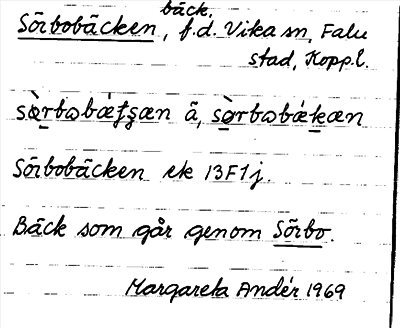 bäck,
Sörbobäcken, f.d. Vika sn, Falu
stad, Kopp.l.
Sörbobäcken ek 13F1j.
Bäck som går genom Sörbo.
Margareta Andér 1969